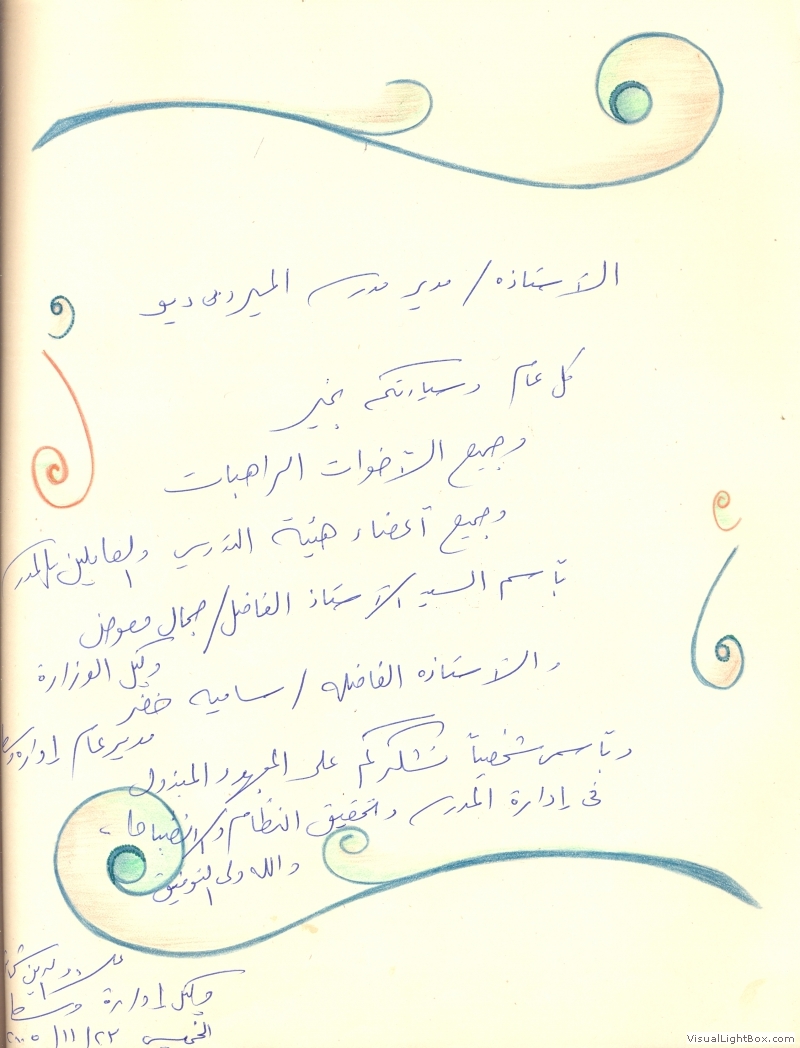 الأستاذه / مدير مدرسه الميردى ديو
كل عام وسيادتكم بخير
وجميع الأخوات الراهبات
وجميع أعضاء هيئة التدريس والعاملين بالمدرسة
بأسم السيد الأستاذ الفاضل / جمال معوض
وكيل الوزارة
والأستاذه الفاضله / ساميه خضر
مدير عام إدارة
وبأسمى شخصياً نشكركم على المجهود المبذول
فى إدارة المدرسه وتحقيق النظام والانضباط
والله ولى التوفيق
وكيل إدارة وسط
الخميس
VisualLightBox.com